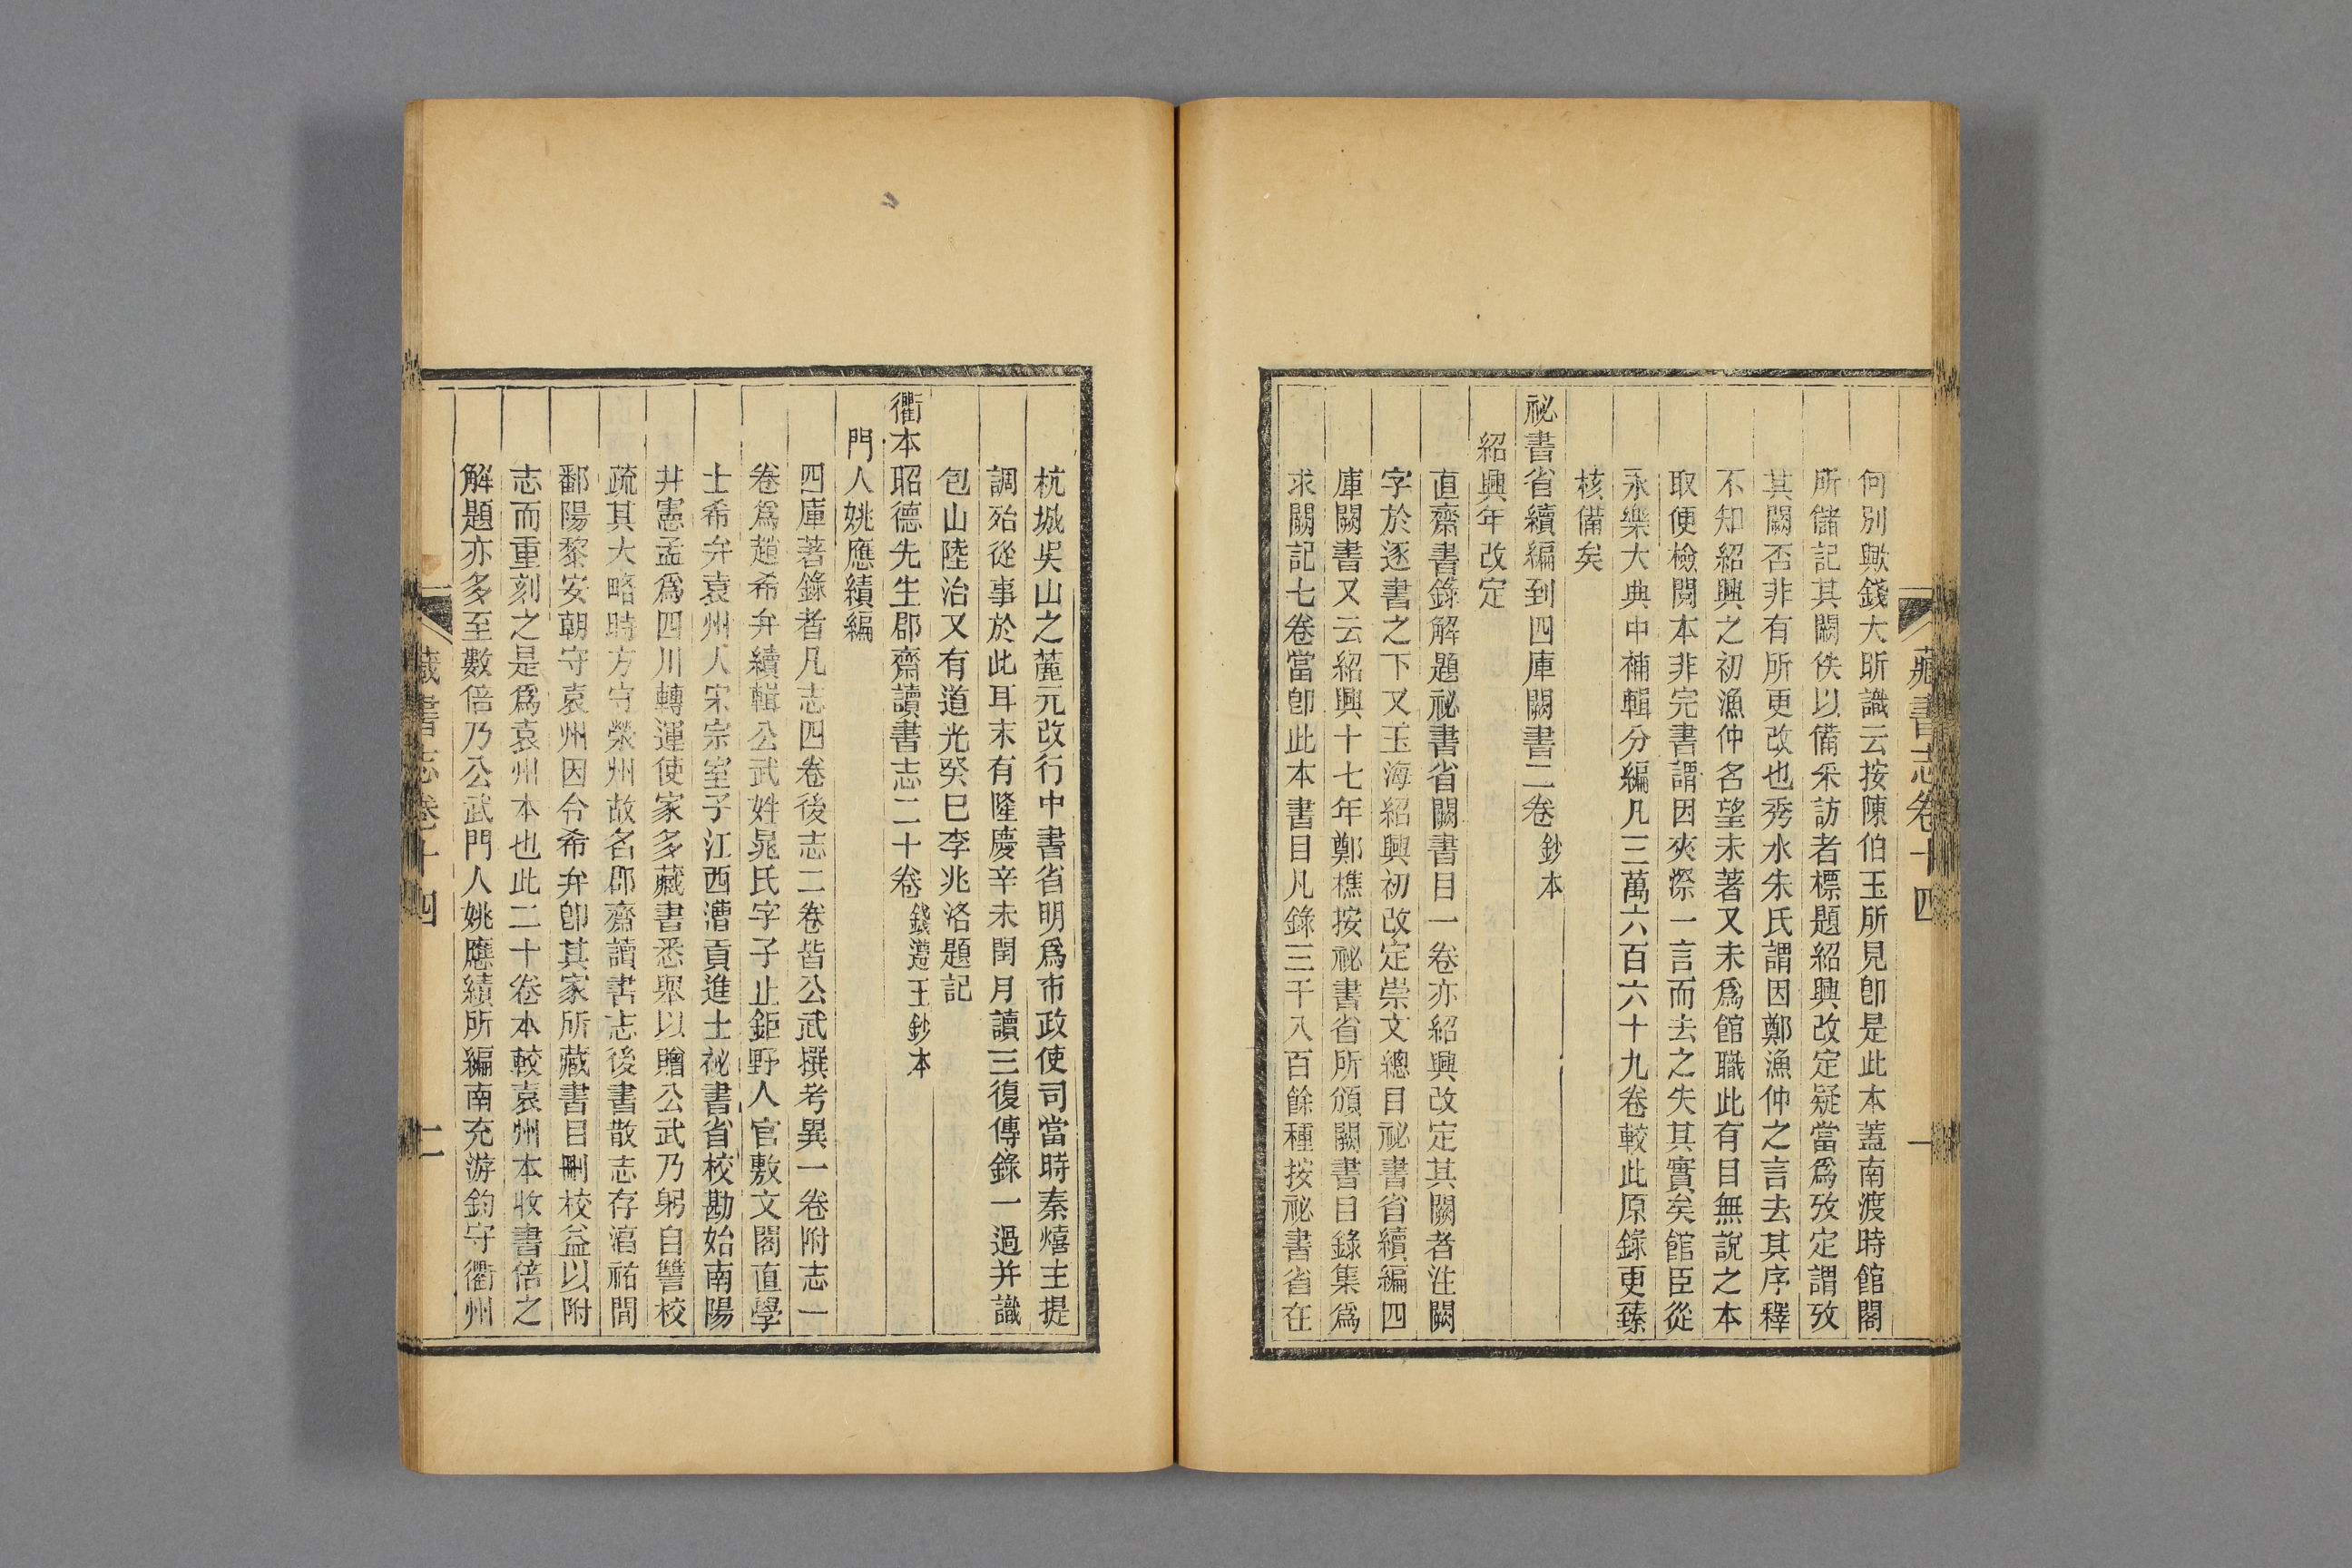 藏書志卷十四
一
何別歟錢大昕識云按陳伯玉所見卽是此本蓋南渡時館閣
所儲記其闕佚以備采訪者標題紹興改定疑當爲攷定謂攷
其闕否非有所更改也秀水朱氏謂因鄭漁仲之言去其序釋
不知紹興之初漁仲名望未著又未爲館職此有目無說之本
取便檢閱本非完書謂因夾漈一言而去之失其實矣館臣從
永樂大典中補輯分編凡三萬六百六十九卷較此原錄更臻
核備矣
祕書省續編到四庫闕書二卷 鈔本
紹興年改定
直齋書錄解題祕書省闕書目一卷亦紹興改定其闕者注闕
字於逐書之下又玉海紹興初改定崇文總目祕書省續編四
庫闕書又云紹興十七年鄭樵按祕書省所頒闕書目錄集爲
求闕記七卷當卽此本書目凡錄三千八百餘種按祕書省在
杭城吳山之麓元改行中書省明爲布政使司當時秦熺主提
調殆從事於此耳末有隆慶辛未閏月讀三復傳錄一過并識
包山陸治又有道光癸巳李兆洛題記
衢本昭德先生郡齋讀書志二十卷 錢遵王鈔本
門人姚應績編
四庫著錄者凡志四卷後志二卷皆公武撰考異一卷附志一
卷爲趙希弁續輯公武姓晁氏字子止鉅野人官敷文閣直學
士希弁袁州人宋宗室子江西漕貢進士祕書省校勘始南陽
井憲孟爲四川轉運使家多藏書悉舉以贈公武乃躬自讐校
疏其大略時方守榮州故名郡齋讀書志後書散志存淳祐間
鄱陽黎安朝守袁州因令希弁卽其家所藏書目刪校益以附
志而重刻之是爲袁州本也此二十卷本較袁州本收書倍之
解題亦多至數倍乃公武門人姚應績所編南充游鈞守衢州
藏書志卷十四
二